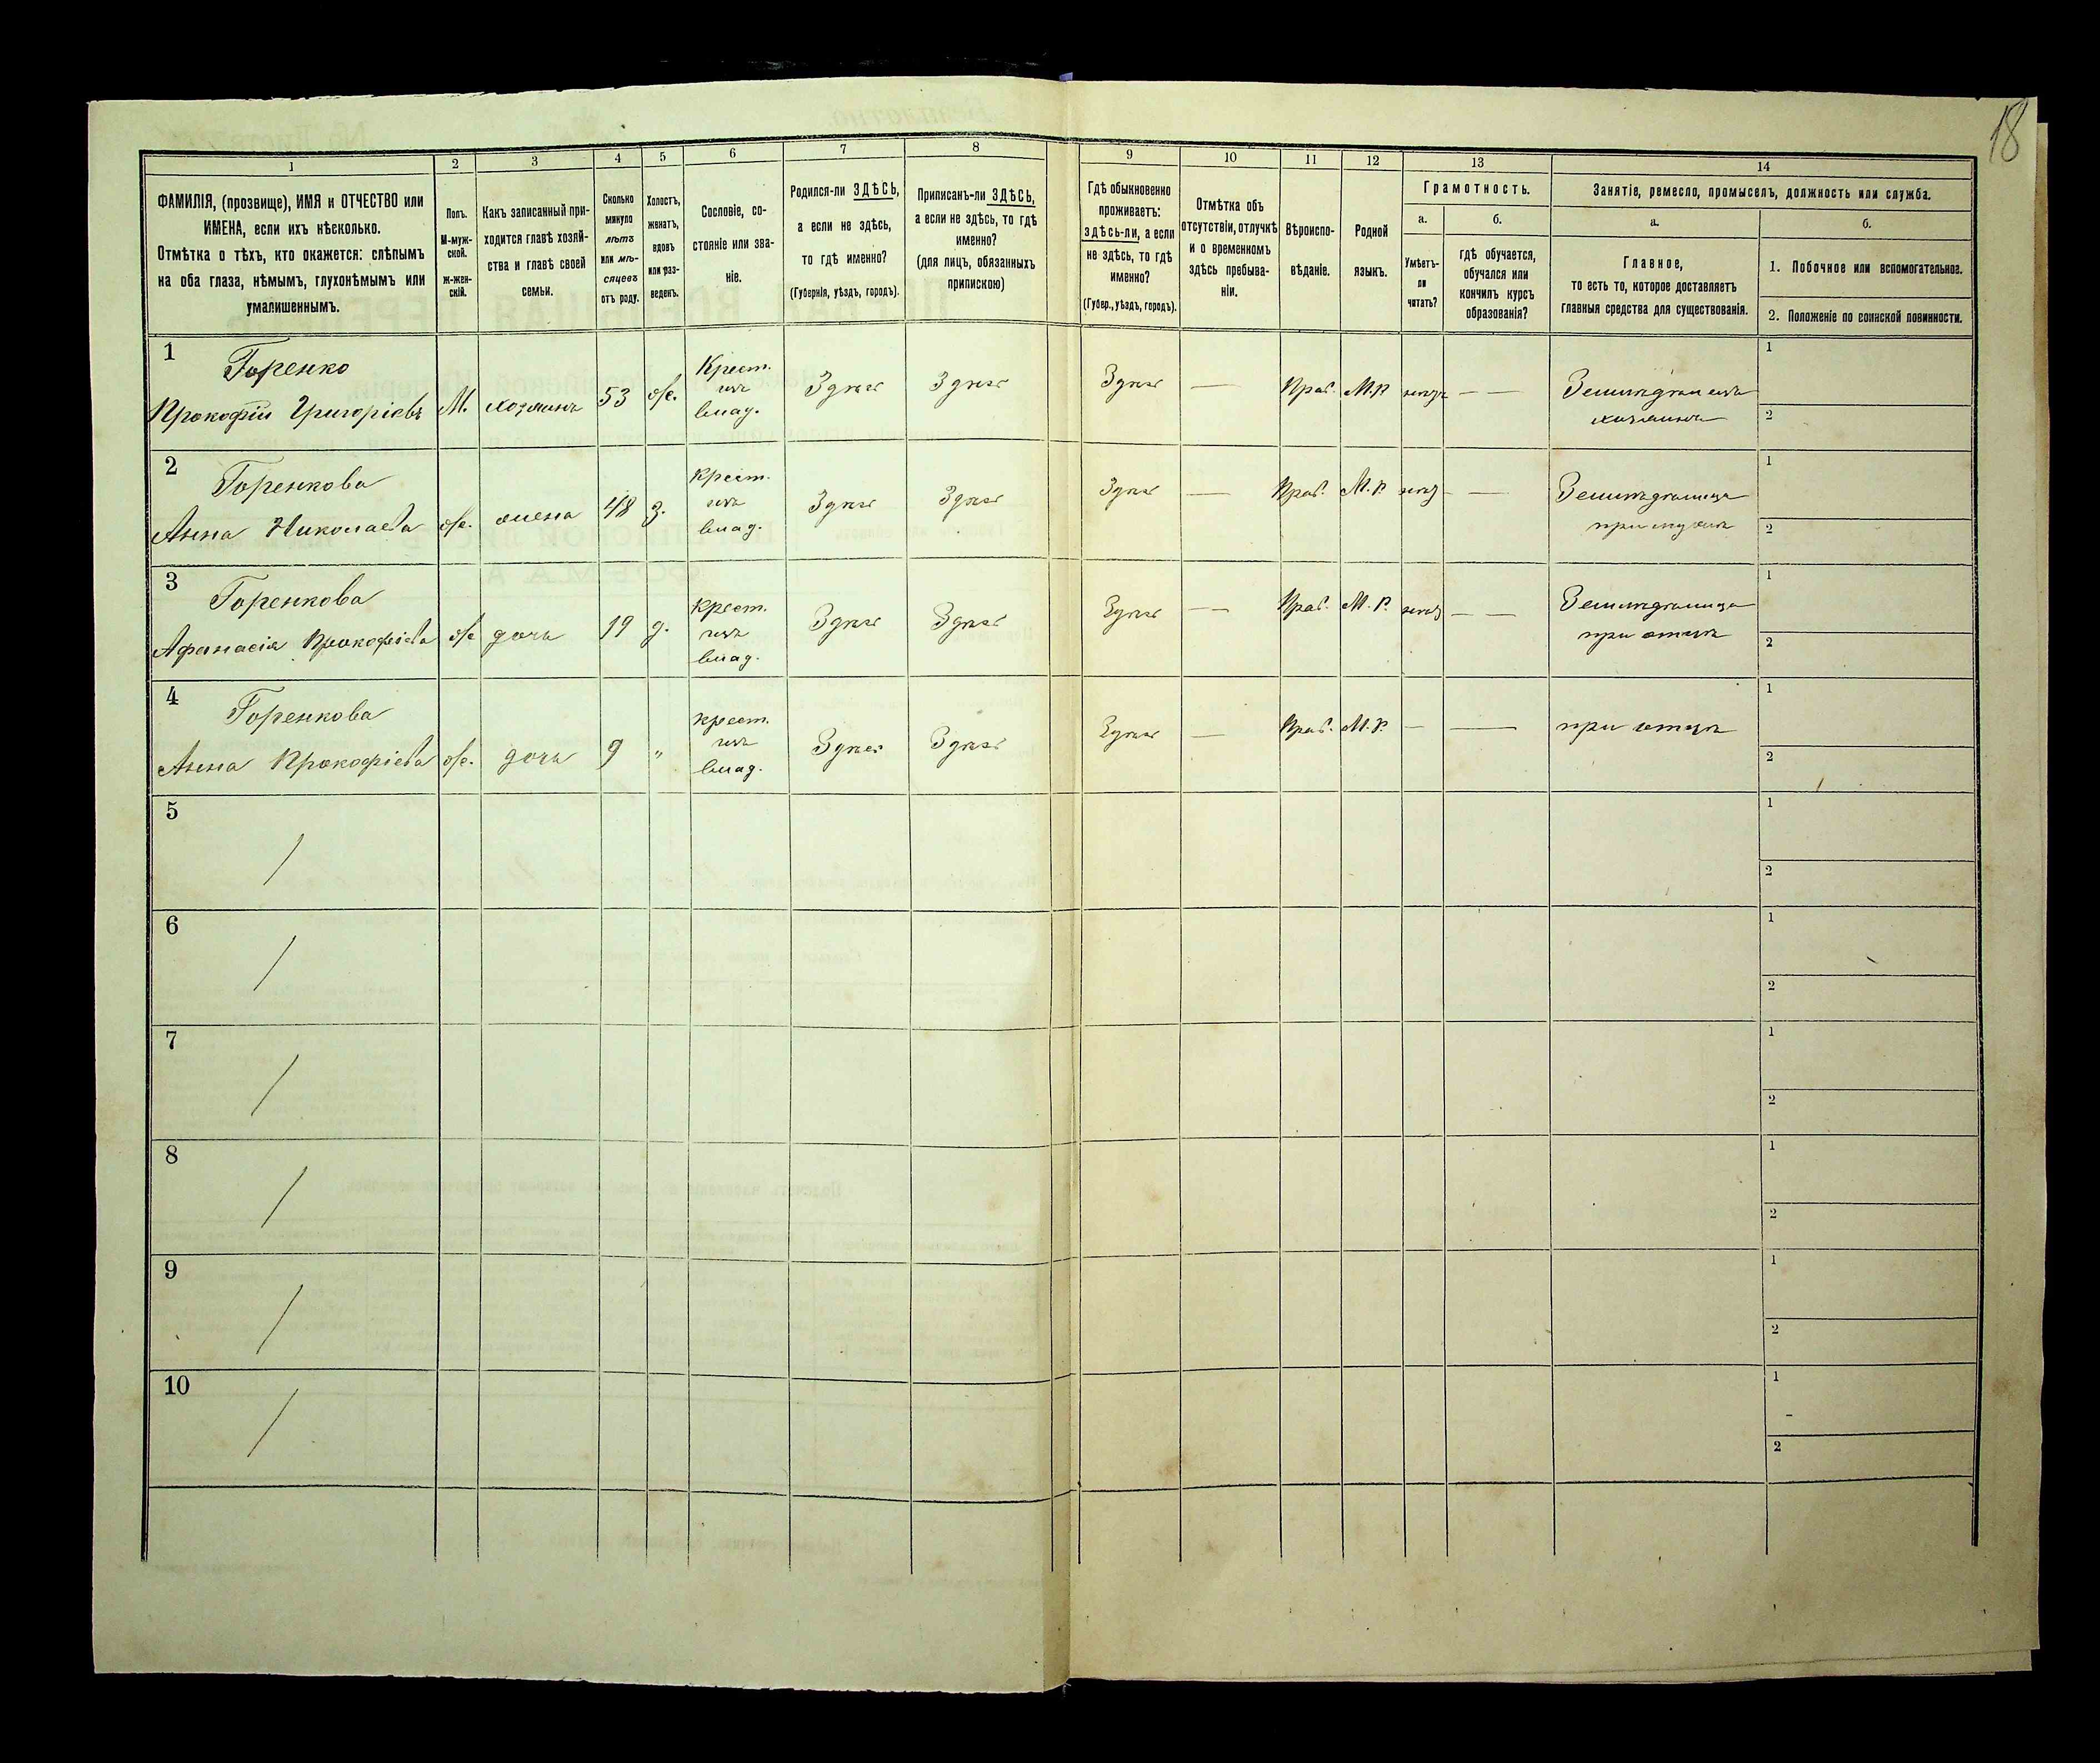 18
1
2
3
4
5
6
7
8
9
10
11
12
13
14
ФАМИЛІЯ, (прозвище), ИМЯ и ОТЧЕСТВО или
ИМЕНА, если ихъ нѣсколько.
Отмѣтка о тѣхъ, кто окажется: слѣпымъ
на оба глаза, нѣмымъ, глухонѣмымъ или
умалишеннымъ.
Полъ.
М-муж-
ской.
ж-жен-
скій.
Какъ записанный при-
ходится главѣ хозяй-
ства и главѣ своей
семьи.
Сколько
минуло
лѣтъ
или мѣ-
сяцевъ
отъ роду.
Холостъ,
женатъ,
вдовъ
или раз-
веденъ.
Сословіе, со-
стояніе или зва-
ніе.
Родился-ли ЗДѢСЬ,
а если не здѣсь,
то гдѣ именно?
(Губернія, уѣздъ, городъ).
Приписанъ-ли ЗДѢСЬ,
а если не здѣсь, то гдѣ
именно?
(для лицъ, обязанныхъ
припискою)
Гдѣ обыкновенно
проживаетъ:
здѣсь-ли, а если
не здѣсь, то гдѣ
именно?
(Губер., уѣздъ, городъ).
Отмѣтка объ
отсутствіи, отлучкѣ
и о временномъ
здѣсь пребыва-
ніи.
Вѣроиспо-
вѣданіе.
Родной
языкъ.
Грамотность.
а.
Умѣетъ-
ли
читать?
б.
гдѣ обучается,
обучался или
кончилъ курсъ
образованія?
Занятіе, ремесло, промыселъ, должность или служба.
а.
Главное,
то есть то, которое доставляетъ
главныя средства для существованія.
б.
1. Побочное или вспомогательное.
2. Положеніе по воинской повинности.
1
Горенко
Прокофій Григоріевъ
М.
хозяинъ
53
ж.
Крест.
изъ
влад.
Здѣсь
Здѣсь
Здѣсь
—
Прав.
М.Р.
нѣтъ
— —
Земледѣлецъ
хозяинъ
1
2
2
Горенкова
Анна Николаева
ж.
жена
48
з.
крест.
изъ
влад.
Здѣсь
Здѣсь
Здѣсь
—
Прав.
М.Р.
нѣтъ
— —
Земледѣлица
при мужѣ
1
2
3
Горенкова
Афанасія Прокофіева
ж
дочь
19
д.
крест.
изъ
влад.
Здѣсь
Здѣсь
Здѣсь
—
Прав.
М.Р.
нѣтъ
— —
Земледѣлица
при отцѣ
1
2
4
Горенкова
Анна Прокофіева
ж.
дочь
9
"
крест.
изъ
влад.
Здѣсь
Здѣсь
Здѣсь
—
Прав.
М.Р.
—
—
при отцѣ
1
2
5
/
1
2
6
/
1
2
7
/
1
2
8
/
1
2
9
/
1
2
10
/
1
2